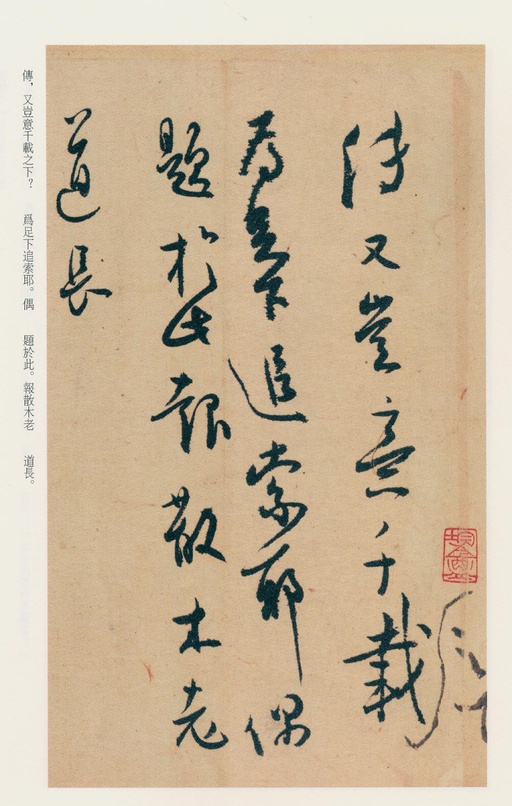 傳又豈意千載
為足下追索耶偶
題於此報散木老
道長
傳，又豈意千載之下？　爲足下追索耶。偶　題於此。報散木老　道長。